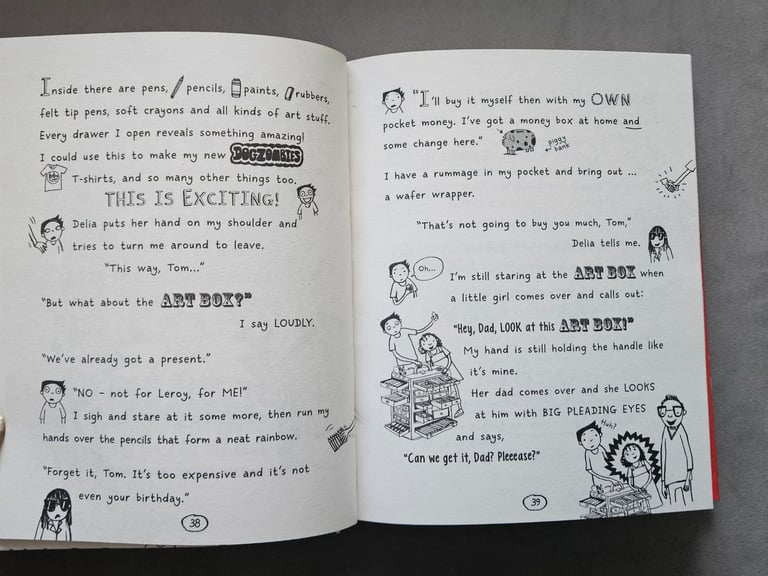 Inside there are pens, pencils, paints, rubbers,
felt tip pens, soft crayons and all kinds of art stuff.
Every drawer I open reveals something amazing!
I could use this to make my new DOGZOMBIES
T-shirts, and so many other things too.
THIS IS EXCITING!
Delia puts her hand on my shoulder and
tries to turn me around to leave.
"This way, Tom..."
"But what about the ART BOX?"
I say LOUDLY.
"We've already got a present."
"NO – not for Leroy, for ME!"
I sigh and stare at it some more, then run my
hands over the pencils that form a neat rainbow.
"Forget it, Tom. It's too expensive and it's not
even your birthday."
38
"I'll buy it myself then with my OWN
pocket money. I've got a money box at home and
some change here."
piggy
bank
I have a rummage in my pocket and bring out ...
a wafer wrapper.
"That's not going to buy you much, Tom,"
Delia tells me.
Oh...
I'm still staring at the ART BOX when
a little girl comes over and calls out:
"Hey, Dad, LOOK at this ART BOX!"
My hand is still holding the handle like
it's mine.
Her dad comes over and she LOOKS
at him with BIG PLEADING EYES
and says,
Huh?
"Can we get it, Dad? Pleeease?"
39